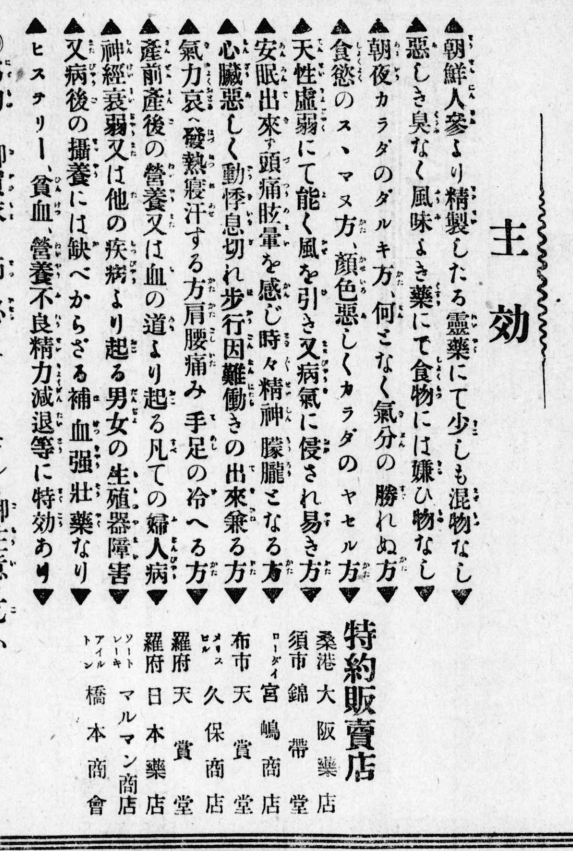 主効
▲朝鮮人參より精製したる靈藥にて少しも混物なし▼
▲惡しき臭なく風味よき藥にて食物には嫌ひ物なし▼
▲朝夜カラダのダルキ方、何となく氣分の勝れぬ方▼
▲食慾のスヽマヌ方、顔色惡しくカラダのヤセル方▼
▲天性虛弱にて能く風を引き又病氣に侵され易き方▼
▲安眠出來ず頭痛眩暈を感じ時々精神朦朧となる方▼
▲心臟惡しく動悸息切れ步行困難働きの出來兼る方▼
▲氣力哀へ發熱寢汗する方肩腰痛み手足の冷へる方▼
▲產前產後の營養又は血の道より起る凡ての婦人病▼
▲神經衰弱又は他の疾病より起る男女の生殖器障害▼
▲又病後の攝養には缺べからざる補血强壯藥なり▼
▲ヒステリー、貧血、營養不良精力減退等に特効あり▼
特約販賣店
桑港大阪藥店
須市錦帶堂
ローダイ宮嶋商店
布市天賞堂
メリスビル久保商店
羅府天賞堂
羅府日本藥店
ソートレーキマルマン商店
アイルトン橋本商會